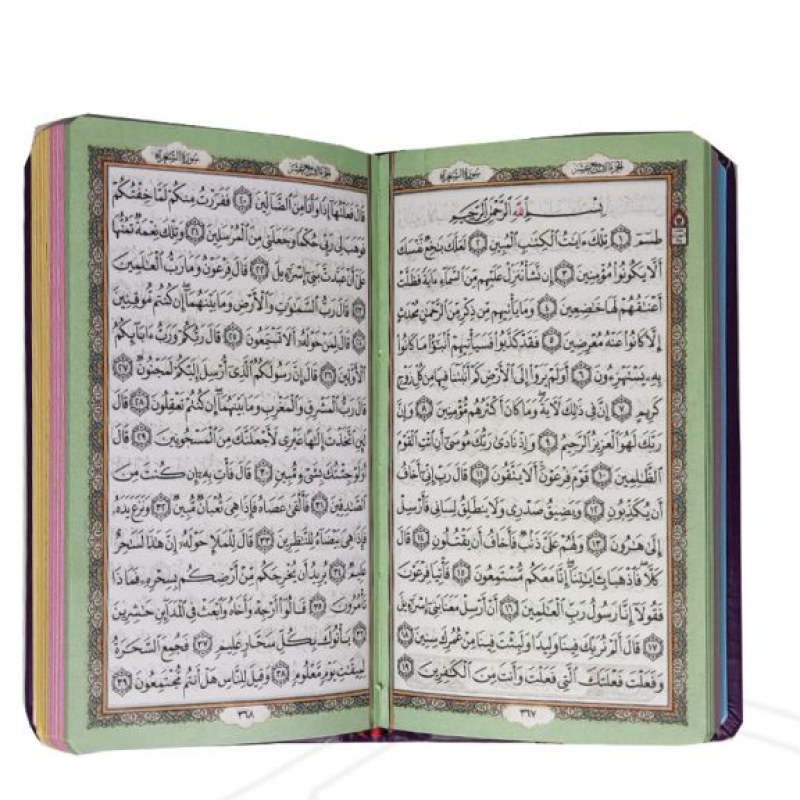 الجزء التاسع عشر
سورة الشعراء
بسم الله الرحمن الرحيم
طسٓمٓ ١ تِلْكَ ءَايَٰتُ ٱلْكِتَٰبِ ٱلْمُبِينِ ٢ لَعَلَّكَ بَٰخِعٌ نَّفْسَكَ
أَلَّا يَكُونُوا۟ مُؤْمِنِينَ ٣ إِن نَّشَأْ نُنَزِّلْ عَلَيْهِم مِّنَ ٱلسَّمَآءِ ءَايَةً فَظَلَّتْ
أَعْنَٰقُهُمْ لَهَا خَٰضِعِينَ ٤ وَمَا يَأْتِيهِم مِّن ذِكْرٍ مِّنَ ٱلرَّحْمَٰنِ مُحْدَثٍ
إِلَّا كَانُوا۟ عَنْهُ مُعْرِضِينَ ٥ فَقَدْ كَذَّبُوا۟ فَسَيَأْتِيهِمْ أَنۢبَٰٓؤُا۟ مَا كَانُوا۟
بِهِۦ يَسْتَهْزِءُونَ ٦ أَوَلَمْ يَرَوْا۟ إِلَى ٱلْأَرْضِ كَمْ أَنۢبَتْنَا فِيهَا مِن كُلِّ زَوْجٍ
كَرِيمٍ ٧ إِنَّ فِى ذَٰلِكَ لَءَايَةً وَمَا كَانَ أَكْثَرُهُم مُّؤْمِنِينَ ٨ وَإِنَّ
رَبَّكَ لَهُوَ ٱلْعَزِيزُ ٱلرَّحِيمُ ٩ وَإِذْ نَادَىٰ رَبُّكَ مُوسَىٰٓ أَنِ ٱئْتِ ٱلْقَوْمَ
ٱلظَّٰلِمِينَ ١٠ قَوْمَ فِرْعَوْنَ أَلَا يَتَّقُونَ ١١ قَالَ رَبِّ إِنِّىٓ أَخَافُ
أَن يُكَذِّبُونِ ١٢ وَيَضِيقُ صَدْرِى وَلَا يَنطَلِقُ لِسَانِى فَأَرْسِلْ
إِلَىٰ هَٰرُونَ ١٣ وَلَهُمْ عَلَىَّ ذَنۢبٌ فَأَخَافُ أَن يَقْتُلُونِ ١٤ قَالَ
كَلَّا فَٱذْهَبَا بِـَٔايَٰتِنَآ إِنَّا مَعَكُم مُّسْتَمِعُونَ ١٥ فَأْتِيَا فِرْعَوْنَ
فَقُولَآ إِنَّا رَسُولُ رَبِّ ٱلْعَٰلَمِينَ ١٦ أَنْ أَرْسِلْ مَعَنَا بَنِىٓ إِسْرَٰٓءِيلَ
١٧ قَالَ أَلَمْ نُرَبِّكَ فِينَا وَلِيدًا وَلَبِثْتَ فِينَا مِنْ عُمُرِكَ سِنِينَ ١٨
وَفَعَلْتَ فَعْلَتَكَ ٱلَّتِى فَعَلْتَ وَأَنتَ مِنَ ٱلْكَٰفِرِينَ ١٩
٣٦٧
الجزء التاسع عشر
سورة الشعراء
قَالَ فَعَلْتُهَآ إِذًا وَأَنَا۠ مِنَ ٱلضَّآلِّينَ ٢٠ فَفَرَرْتُ مِنكُمْ لَمَّا خِفْتُكُمْ
فَوَهَبَ لِى رَبِّى حُكْمًا وَجَعَلَنِى مِنَ ٱلْمُرْسَلِينَ ٢١ وَتِلْكَ نِعْمَةٌ تَمُنُّهَا
عَلَىَّ أَنْ عَبَّدتَّ بَنِىٓ إِسْرَٰٓءِيلَ ٢٢ قَالَ فِرْعَوْنُ وَمَا رَبُّ ٱلْعَٰلَمِينَ
٢٣ قَالَ رَبُّ ٱلسَّمَٰوَٰتِ وَٱلْأَرْضِ وَمَا بَيْنَهُمَآ إِن كُنتُم مُّوقِنِينَ
٢٤ قَالَ لِمَنْ حَوْلَهُۥٓ أَلَا تَسْتَمِعُونَ ٢٥ قَالَ رَبُّكُمْ وَرَبُّ ءَابَآئِكُمُ
ٱلْأَوَّلِينَ ٢٦ قَالَ إِنَّ رَسُولَكُمُ ٱلَّذِىٓ أُرْسِلَ إِلَيْكُمْ لَمَجْنُونٌ ٢٧
قَالَ رَبُّ ٱلْمَشْرِقِ وَٱلْمَغْرِبِ وَمَا بَيْنَهُمَآ إِن كُنتُمْ تَعْقِلُونَ ٢٨ قَالَ
لَئِنِ ٱتَّخَذْتَ إِلَٰهًا غَيْرِى لَأَجْعَلَنَّكَ مِنَ ٱلْمَسْجُونِينَ ٢٩ قَالَ
أَوَلَوْ جِئْتُكَ بِشَىْءٍ مُّبِينٍ ٣٠ قَالَ فَأْتِ بِهِۦٓ إِن كُنتَ مِنَ
ٱلصَّٰدِقِينَ ٣١ فَأَلْقَىٰ عَصَاهُ فَإِذَا هِىَ ثُعْبَانٌ مُّبِينٌ ٣٢ وَنَزَعَ يَدَهُۥ
فَإِذَا هِىَ بَيْضَآءُ لِلنَّٰظِرِينَ ٣٣ قَالَ لِلْمَلَإِ حَوْلَهُۥٓ إِنَّ هَٰذَا لَسَٰحِرٌ
عَلِيمٌ ٣٤ يُرِيدُ أَن يُخْرِجَكُم مِّنْ أَرْضِكُم بِسِحْرِهِۦ فَمَاذَا
تَأْمُرُونَ ٣٥ قَالُوٓا۟ أَرْجِهْ وَأَخَاهُ وَٱبْعَثْ فِى ٱلْمَدَآئِنِ حَٰشِرِينَ
٣٦ يَأْتُوكَ بِكُلِّ سَحَّارٍ عَلِيمٍ ٣٧ فَجُمِعَ ٱلسَّحَرَةُ
لِمِيقَٰتِ يَوْمٍ مَّعْلُومٍ ٣٨ وَقِيلَ لِلنَّاسِ هَلْ أَنتُم مُّجْتَمِعُونَ ٣٩
٣٦٨